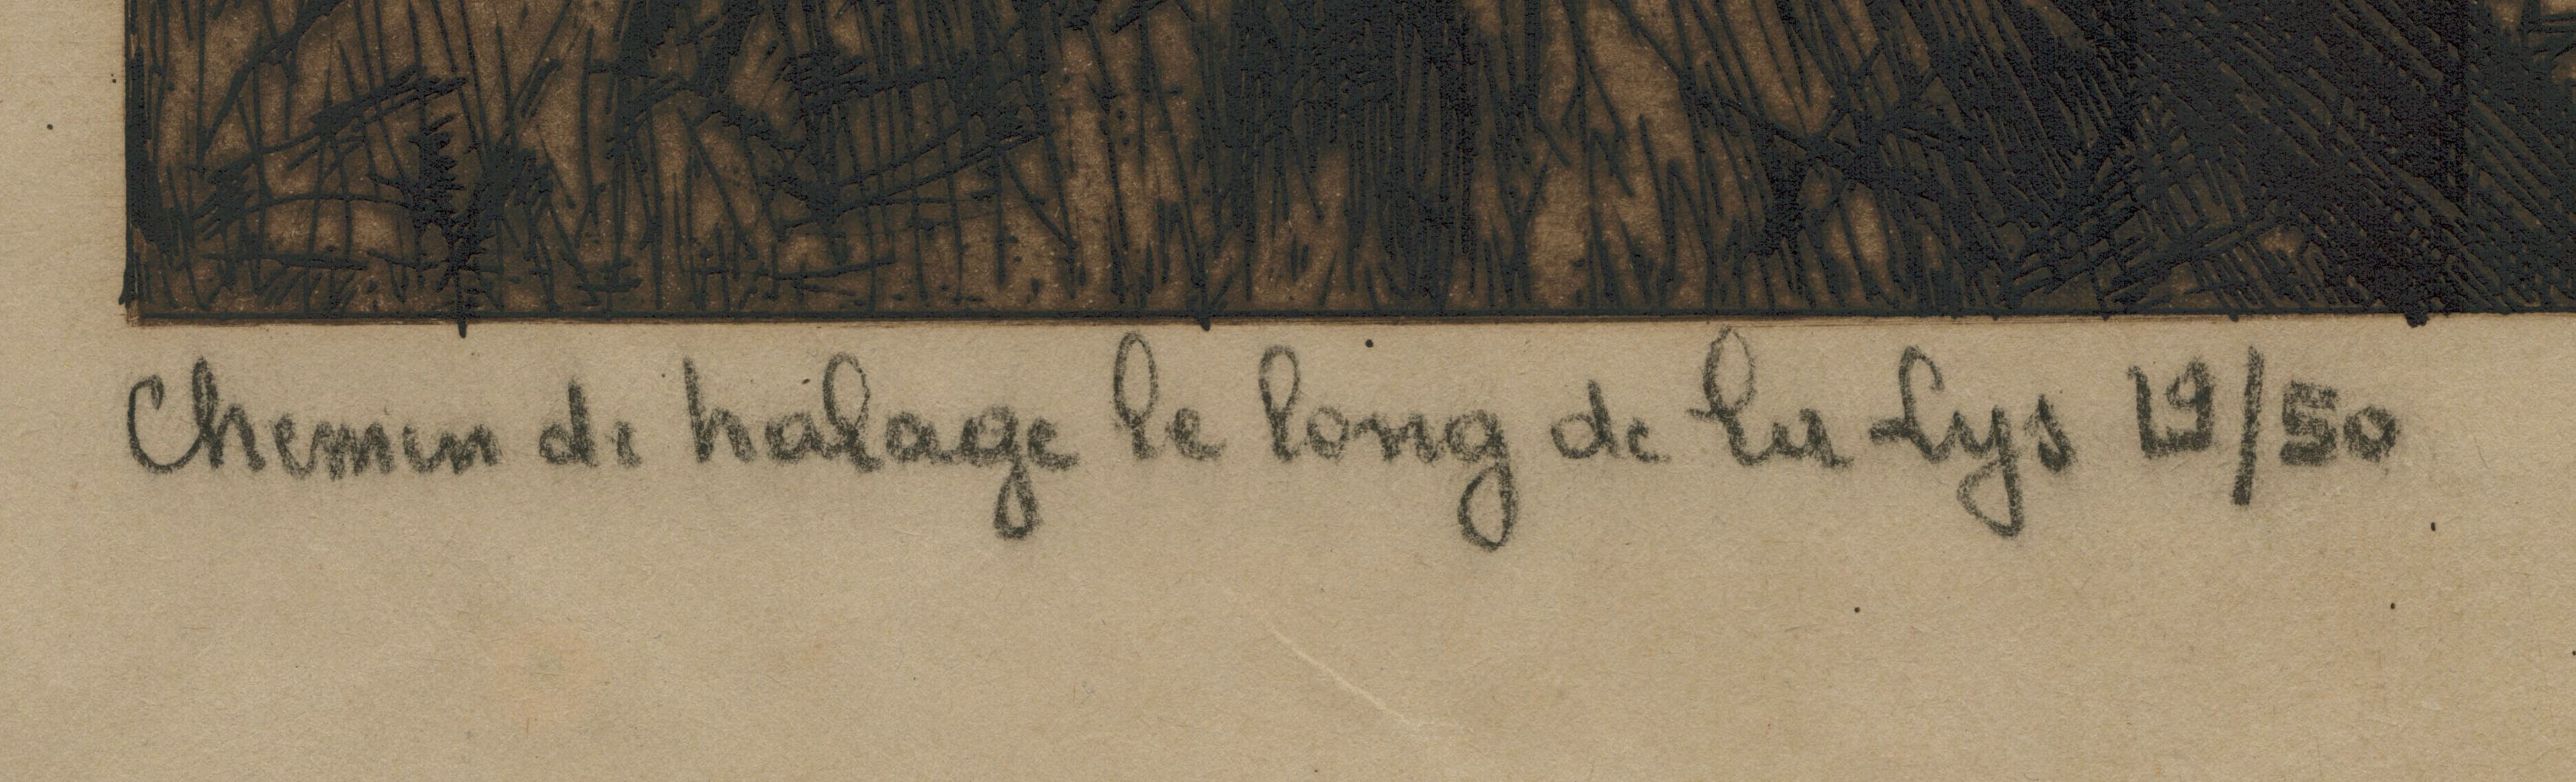 Chemin de halage le long de la Lys 19/50